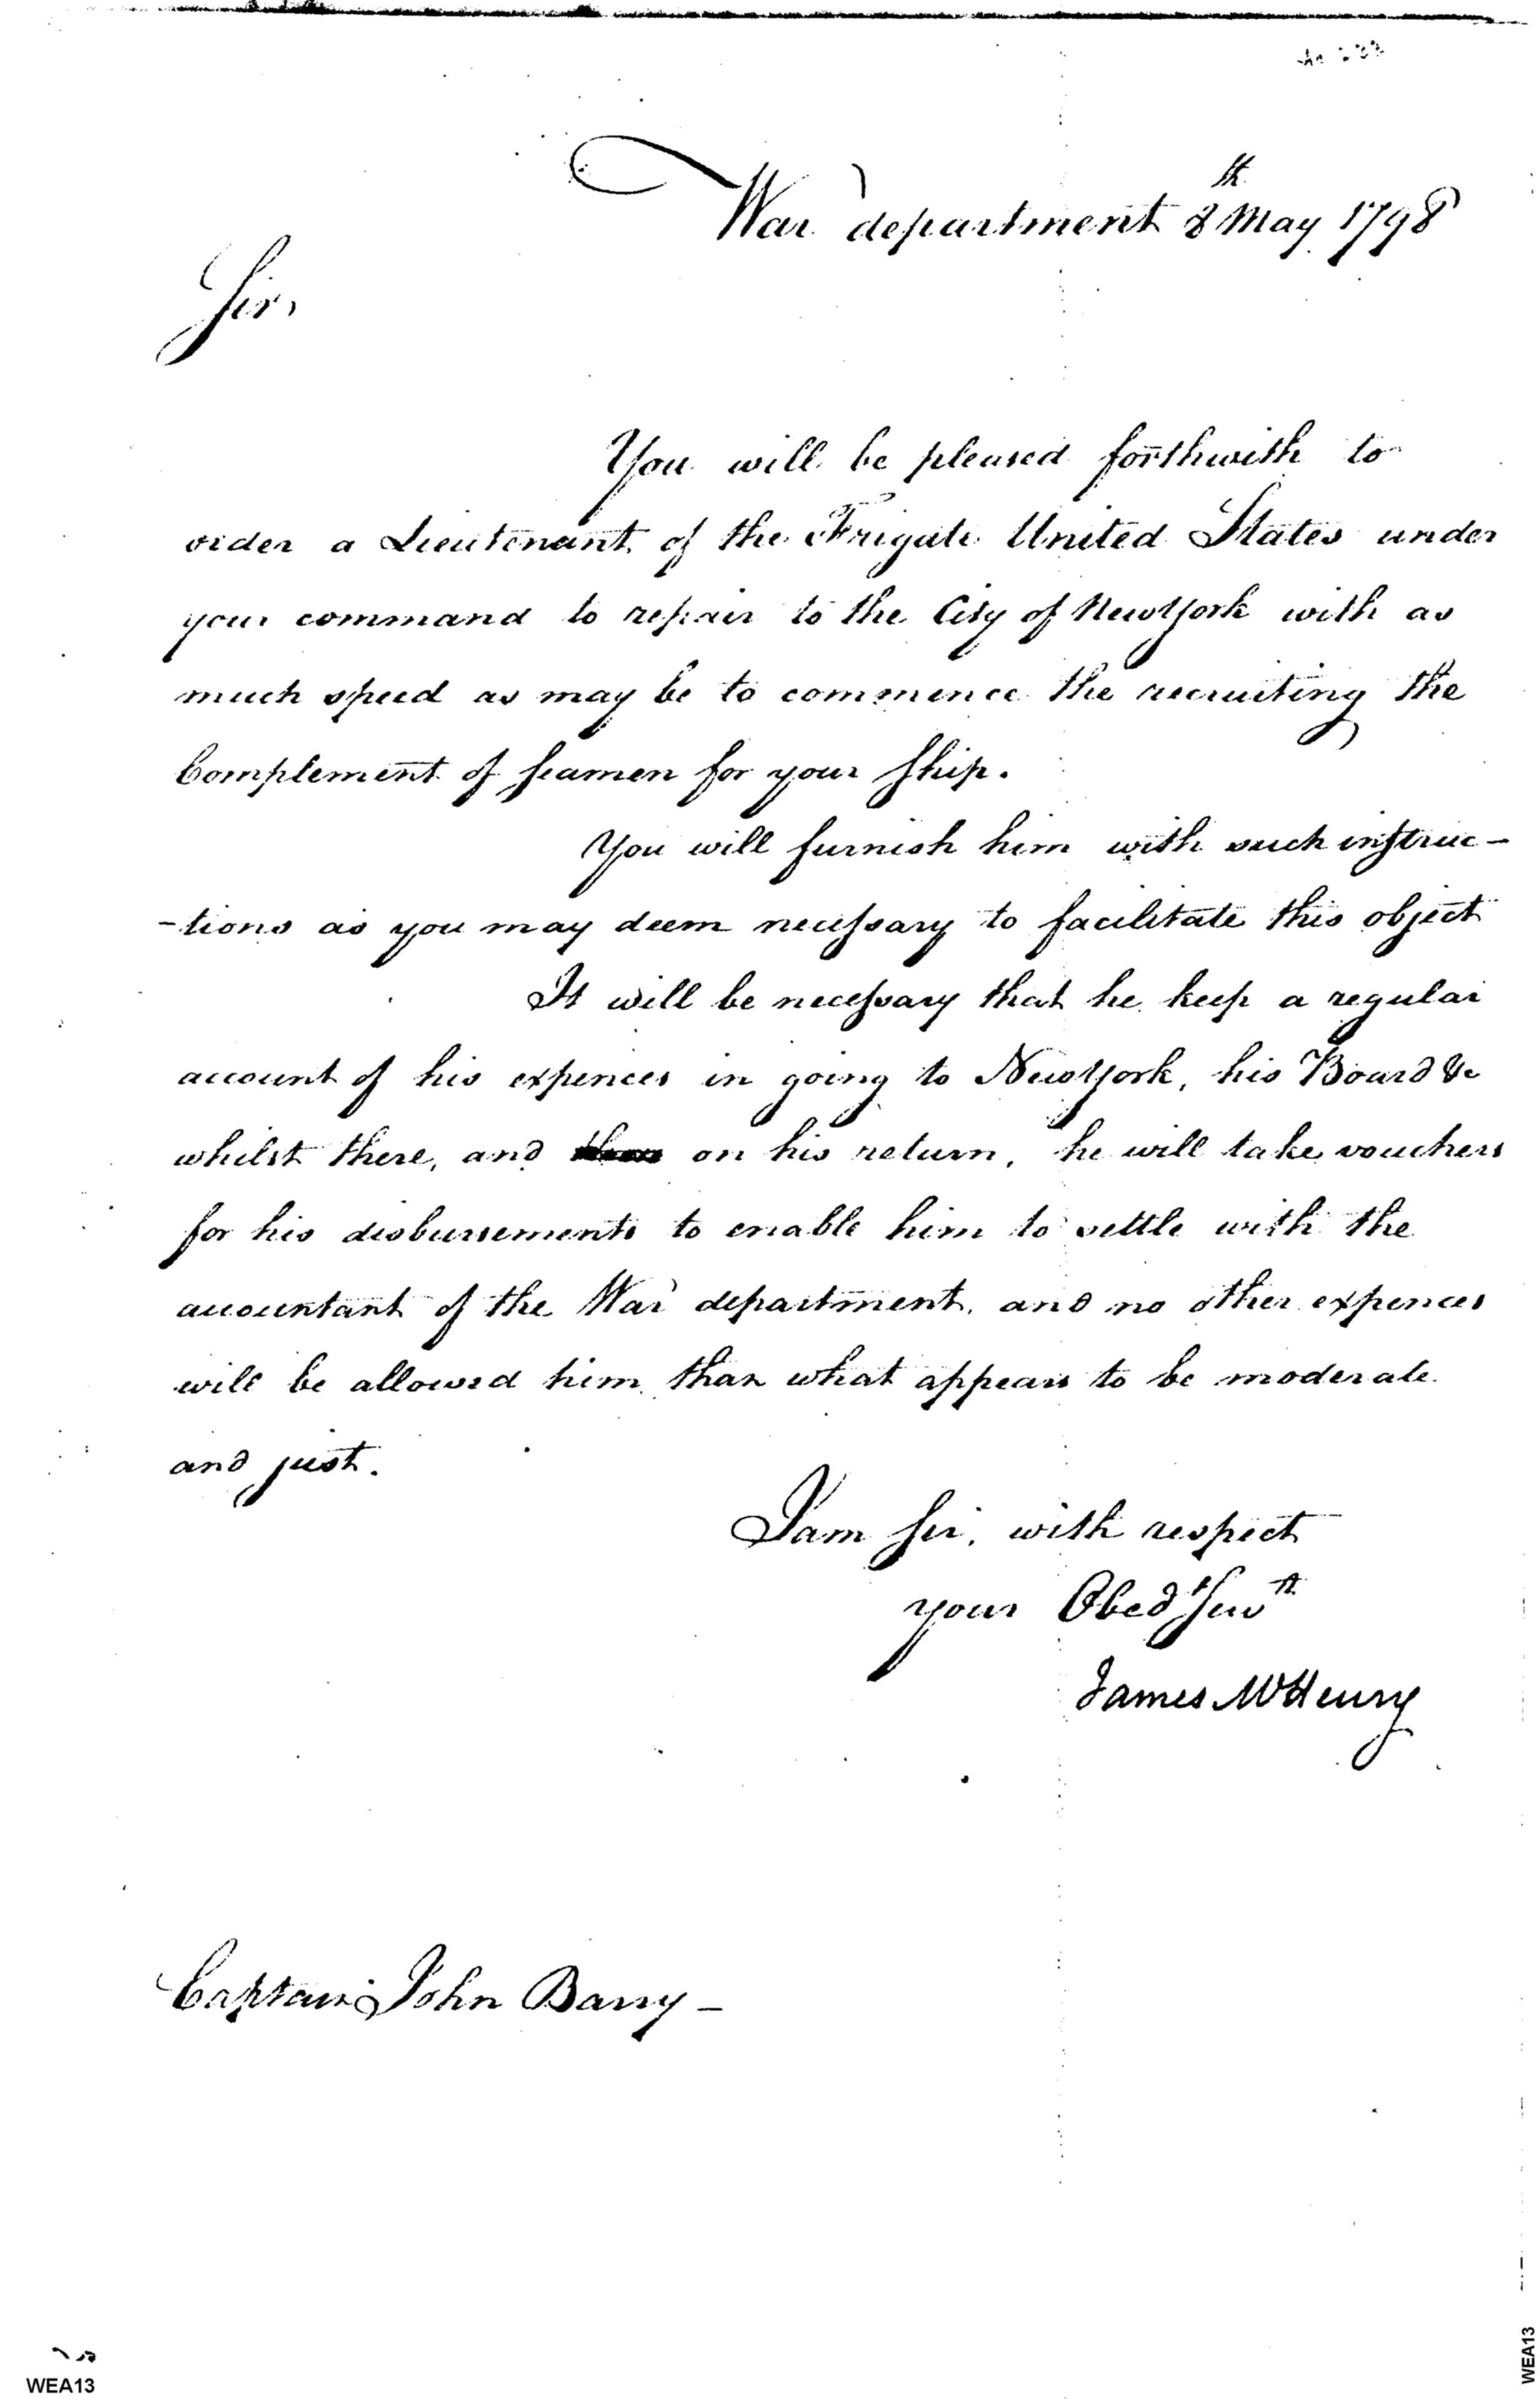 War department 8th May 1798
Sir,
You will be pleased forthwith to
order a Lieutenant of the Frigate United States under
your command to repair to the City of New York with as
much speed as may be to commence the recruiting the
Complement of Seamen for your Ship.
You will furnish him with such instruc-
-tions as you may deem necessary to facilitate this object
It will be necessary that he keep a regular
account of his expences in going to New York, his Board &c
whilst there, and on his return, he will take vouchers
for his disbursements to enable him to settle with the
accountant of the War department, and no other expences
will be allowed him than what appears to be moderate
and just.
I am Sir, with respect
your Obedt Servt
James McHenry
Captain John Barry -
WEA13
WEA13